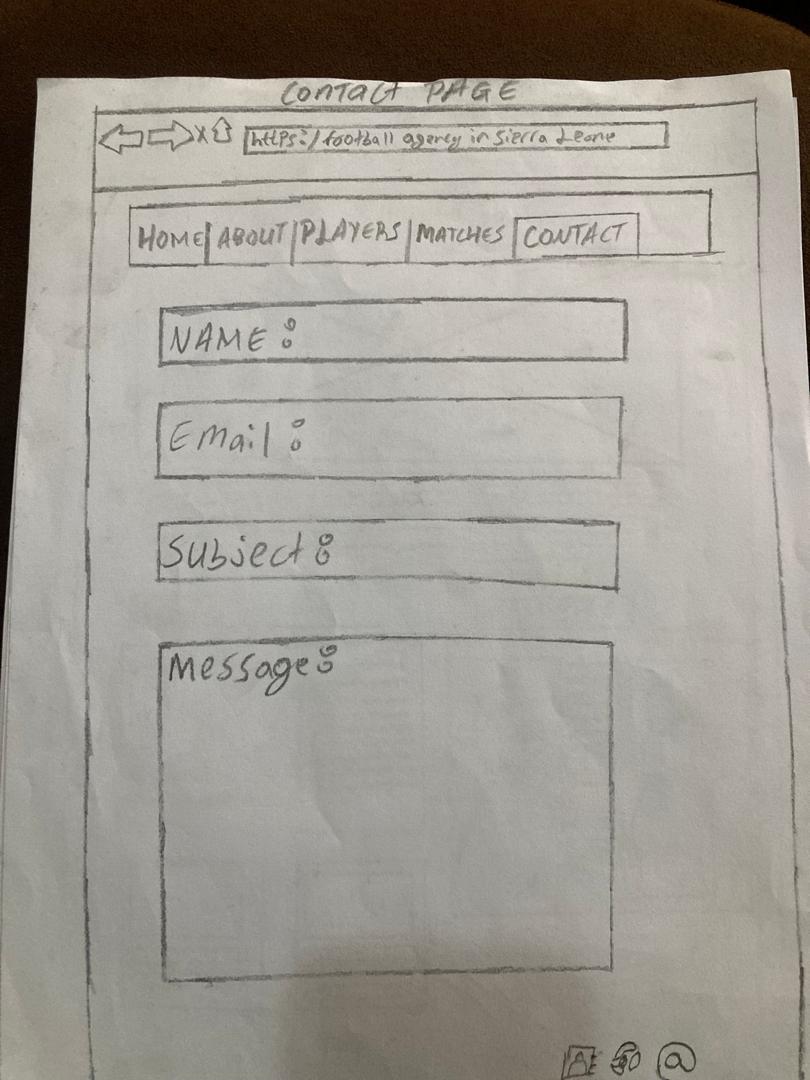 Contact PAGE
x https:/football agency in Sierra Leone
HOME ABOUT PLAYERS MATCHES CONTACT
NAME:
Email:
Subject:
Message:
@